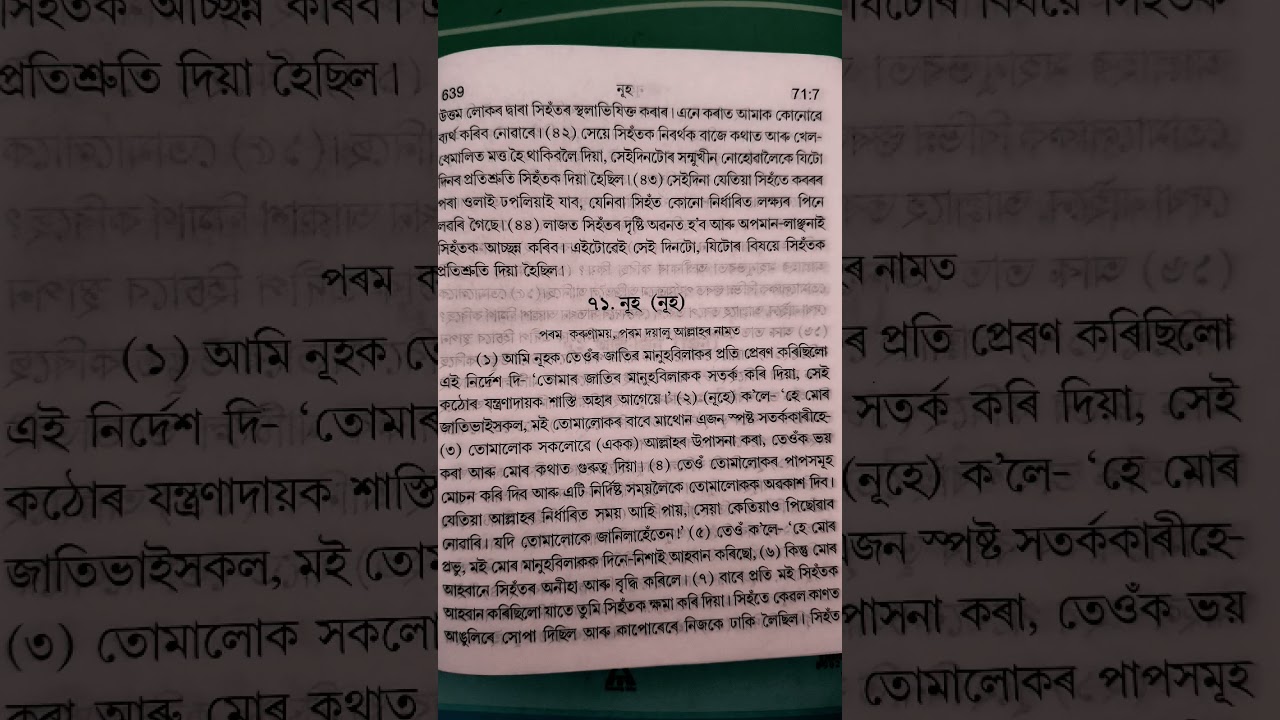 639 নূহ 71:7
উত্তম লোকৰ দ্বাৰা সিহঁতৰ স্থলাভিষিক্ত কৰাৰ। এনে কৰাত আমাক কোনোৱে
ব্যৰ্থ কৰিব নোৱাৰে। (৪২) সেয়ে সিহঁতক নিৰৰ্থক বাজে কথাত আৰু খেল-
ধেমালিত মত্ত হৈ থাকিবলৈ দিয়া, সেইদিনটোৰ সন্মুখীন নোহোৱালৈকে যিটো
দিনৰ প্ৰতিশ্ৰুতি সিহঁতক দিয়া হৈছিল। (৪৩) সেইদিনা যেতিয়া সিহঁতে কবৰৰ
পৰা ওলাই ঢপলিয়াই যাব, যেনিবা সিহঁত কোনো নিৰ্ধাৰিত লক্ষ্যৰ পিনে
লৱৰি গৈছে। (৪৪) লাজত সিহঁতৰ দৃষ্টি অৱনত হ'ব আৰু অপমান-লাঞ্ছনাই
সিহঁতক আচ্ছন্ন কৰিব। এইটোৱেই সেই দিনটো, যিটোৰ বিষয়ে সিহঁতক
প্ৰতিশ্ৰুতি দিয়া হৈছিল।
৭১. নূহ (নূহ)
পৰম কৰুণাময়, পৰম দয়ালু আল্লাহৰ নামত
(১) আমি নূহক তেওঁৰ জাতিৰ মানুহবিলাকৰ প্ৰতি প্ৰেৰণ কৰিছিলো
এই নিৰ্দেশ দি- 'তোমাৰ জাতিৰ মানুহবিলাকক সতৰ্ক কৰি দিয়া, সেই
কঠোৰ যন্ত্ৰণাদায়ক শাস্তি অহাৰ আগেয়ে।' (২) (নূহে) ক'লে- 'হে মোৰ
জাতিভাইসকল, মই তোমালোকৰ বাবে মাথোন এজন স্পষ্ট সতৰ্ককাৰীহে-
(৩) তোমালোক সকলোৱে (একক) আল্লাহৰ উপাসনা কৰা, তেওঁক ভয়
কৰা আৰু মোৰ কথাত গুৰুত্ব দিয়া। (৪) তেওঁ তোমালোকৰ পাপসমূহ
মোচন কৰি দিব আৰু এটি নিৰ্দিষ্ট সময়লৈকে তোমালোকক অৱকাশ দিব।
যেতিয়া আল্লাহৰ নিৰ্ধাৰিত সময় আহি পায়, সেয়া কেতিয়াও পিছুৱাব
নোৱাৰি। যদি তোমালোকে জানিলাহেঁতেন।' (৫) তেওঁ ক'লে- 'হে মোৰ
প্ৰভু, মই মোৰ মানুহবিলাকক দিনে-নিশাই আহবান কৰিছো, (৬) কিন্তু মোৰ
আহবানে সিহঁতৰ অনীহা আৰু বৃদ্ধি কৰিলে। (৭) বাৰে প্ৰতি মই সিহঁতক
আহবান কৰিছিলো যাতে তুমি সিহঁতক ক্ষমা কৰি দিয়া। সিহঁতে কেৱল কাণত
আঙুলিৰে সোপা দিছিল আৰু কাপোৰেৰে নিজকে ঢাকি লৈছিল। সিহঁত